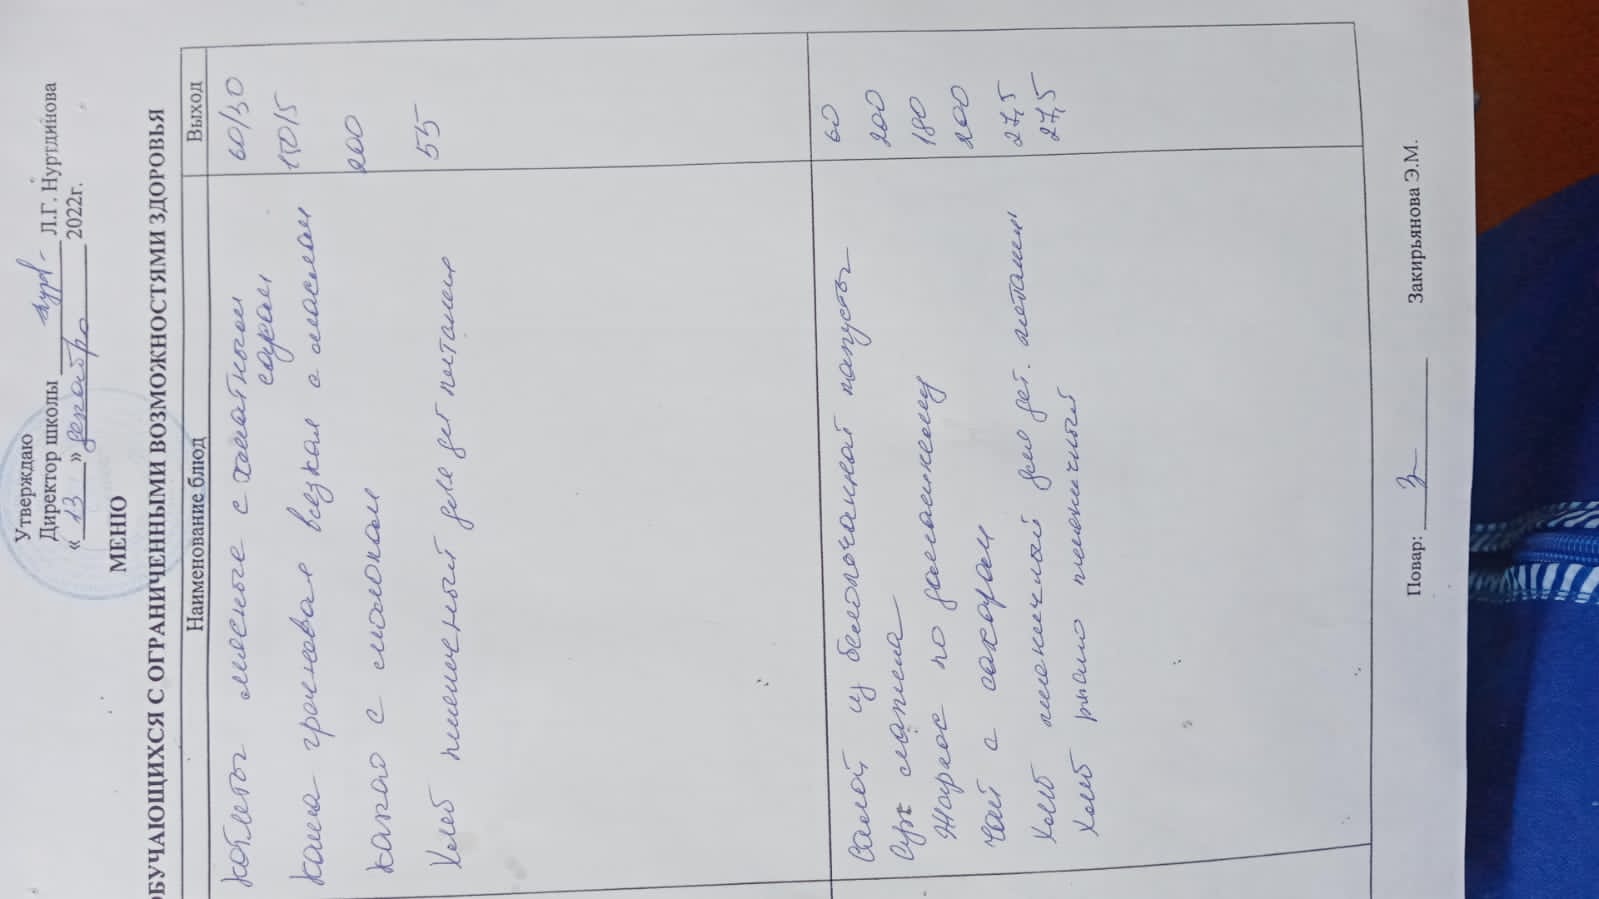 Утверждаю
Директор школы Л.Г. Нуртдинова
«13» декабря 2022г.
МЕНЮ
ОБУЧАЮЩИХСЯ С ОГРАНИЧЕННЫМИ ВОЗМОЖНОСТЯМИ ЗДОРОВЬЯ
Наименование блюд Выход
Котлеты мясные с томатным 60/30
соусом
Каша гречневая вязкая с маслом 150/5
Какао с молоком 200
Хлеб пшеничный для дет питания 55
Салат из белокочанной капусты 60
Суп лапша 200
Жаркое по домашнему 180
Чай с сахаром 200
Хлеб пшеничный для дет. питания 27,5
Хлеб ржано пшеничный 27,5
Повар: Закирьянова Э.М.